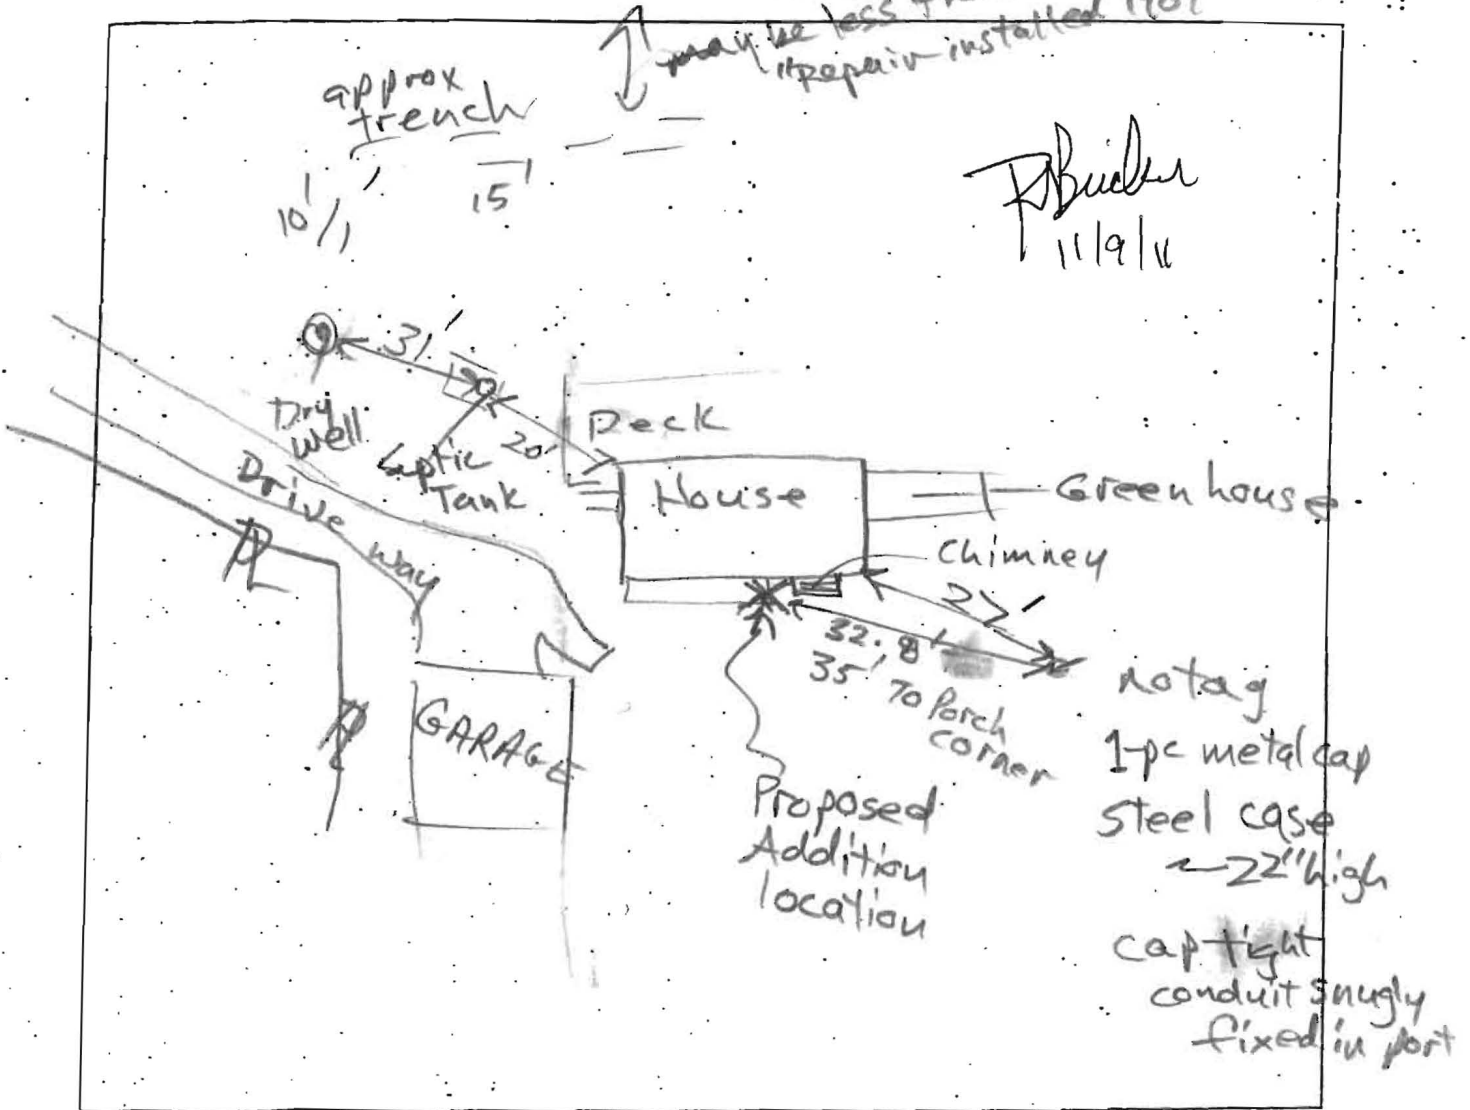 may be less
Repair installed
approx
trench
10'
15'
11/9/11
31'
Dry
well
Septic
Tank
20'
Deck
House
Greenhouse
Chimney
Drive way
PL
27'
32.8'
35' To Porch
corner
GARAGE
Proposed
Addition
location
no tag
1-pc metal cap
steel case
~22" high
cap tight
conduit snugly
fixed in port